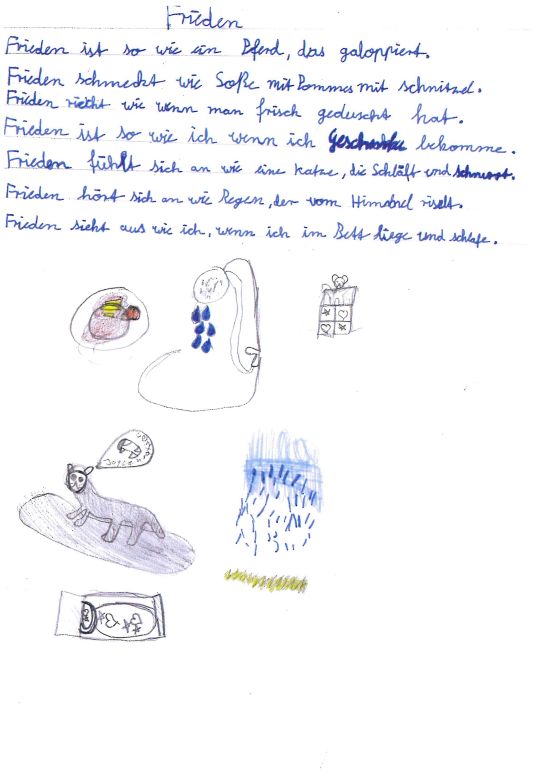 Frieden
Frieden ist so wie ein Pferd, das galoppiert.
Frieden schmeckt wie Soße mit Pommes mit schnitzel.
Frieden riecht wie wenn man frisch geduscht hat.
Frieden ist so wie ich wenn ich Geschenke bekomme.
Frieden fühlt sich an wie eine Katze, die Schläft und schnurrt.
Frieden hört sich an wie Regen, der vom Himmel riselt.
Frieden sieht aus wie ich, wenn ich im Bett liege und schlafe.